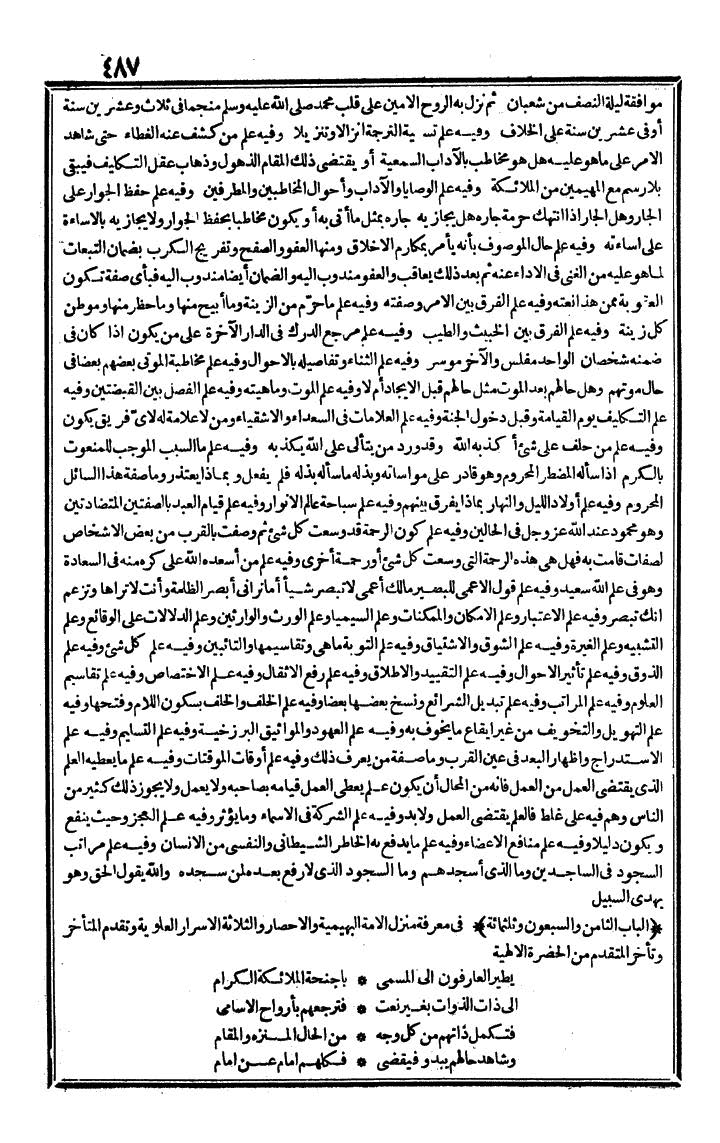 ٤٨٧
موافقة ليلة النصف من شعبان ثم نزل به الروح الامين على قلب محمد صلى الله عليه وسلم منجما فى ثلاث وعشرين سنة
أوفى عشرين سنة على الخلاف وفيه علم تسمية الترجة انزالا وتنزيلا وفيه علم من كشف عنه الغطاء حتى شاهد
الامر على ماهو عليه هل هو مخاطب بالآداب السمعية أو يقتضى ذلك المقام الذهول وذهاب عقل التكليف فيبقى
بلا رسم مع المهيمين من الملائكة وفيه علم الوصايا والآداب وأحوال المخاطبين والمطرفين وفيه علم حفظ الجوار على
الجار وهل الجار اذا انتهك حرمة جاره هل يجازيه جاره بمثل ما أتى به أو يكون مخاطبا بحفظ الجوار ولا يجازيه بالاساءة
على اساءته وفيه علم حال الموصوف بأنه يأمر بمكارم الاخلاق ومنها العفو والصفح وتفريج الكرب بضمان التبعات
لما هو عليه من الغنى فى الاداء عنه ثم بعد ذلك يعاقب والعفو مندوب اليه والضمان أيضا مندوب اليه فبأى صفة تكون
العقوبة ممن هذا نعته وفيه علم الفرق بين الامر وصفته وفيه علم ما حرم من الزينة وما أبيح منها وما حظر منها وموطن
كل زينة وفيه علم الفرق بين الخبيث والطيب وفيه علم مرجع الدرك فى الدار الآخرة على من يكون اذا كان فى
ضمنه شخصان الواحد مفلس والآخر موسر وفيه علم الثناء وتفاصيله بالاحوال وفيه علم مخاطبة الموتى بعضهم بعضا فى
حال موتهم وهل حالهم بعد الموت مثل حالهم قبل الايجاد أم لا وفيه علم الموت وماهيته وفيه علم الفصل بين القبضتين وفيه
علم التكليف يوم القيامة وقبل دخول الجنة وفيه علم العلامات فى السعداء والاشقياء ومن لا علامة له لاىّ فريق يكون
وفيه علم من حلف على شئ أكذبه الله وقد ورد من يتألى على الله يكذبه وفيه علم ما السبب الموجب للمنعوت
بالكرم اذا سأله المضطر المحروم وهو قادر على مواساته وبذله ما سأله بذله فلم يفعل وبماذا يعتذر وما صفة هذا السائل
المحروم وفيه علم أولاد الليل والنهار بماذا يفرق بينهم وفيه علم سباحة عالم الانوار وفيه علم قيام العبد بالصفتين المتضادتين
وهو محمود عند الله عز وجل فى الحالين وفيه علم كون الرحمة قد وسعت كل شئ ثم وصفت بالقرب من بعض الاشخاص
لصفات قامت به فهل هى هذه الرحمة التى وسعت كل شئ أو رحمة أخرى وفيه علم من أسعده الله على كره منه فى السعادة
وهو فى علم الله سعيد وفيه علم قول الاعمى للبصير مالك أعمى لا تبصر شيأ أما ترانى أبصر الظلمة وأنت لا تراها وتزعم
انك تبصر وفيه علم الاعتبار وعلم الامكان والممكنات وعلم السيميا وعلم الورث والوارثين وعلم الدلالات على الوقائع وعلم
التشبيه وعلم الغيرة وفيه علم الشوق والاشتياق وفيه علم التوبة ماهى وتقاسيمها والتائبين وفيه علم كل شئ وفيه علم
الذوق وفيه علم تأثير الاحوال وفيه علم التقييد والاطلاق وفيه علم رفع الاثقال وفيه علم الاختصاص وفيه علم تقاسيم
العلوم وفيه علم المراتب وفيه علم تبديل الشرائع ونسخ بعضها بعضا وفيه علم الخلف والخلف بسكون اللام وفتحها وفيه
علم التهويل والتخويف من غير ايقاع ما يخوف به وفيه علم العهود والمواثيق البرزخية وفيه علم التسليم وفيه علم
الاستدراج واظهار البعد فى عين القرب وما صفة من يعرف ذلك وفيه علم أوقات الموقتات وفيه علم ما يعطيه العلم
الذى يقتضى العمل من العمل فانه من المحال أن يكون علم يعطى العمل قيامه بصاحبه ولا يعمل ولا يجوز ذلك كثير من
الناس وهم فيه على غلط فالعلم يقتضى العمل ولا بد وفيه علم الشركة فى الاسماء وما يؤثر وفيه علم العجز وحيث ينفع
ويكون دليلا وفيه علم منافع الاعضاء وفيه علم ما يدفع به الخاطر الشيطانى والنفسى من الانسان وفيه علم مراتب
السجود فى الساجدين وما الذى أسجدهم وما السجود الذى لا رفع بعده لمن سجده والله يقول الحق وهو
يهدى السبيل
﴿الباب الثامن والسبعون وثلثمائة﴾ فى معرفة منزل الامة البهيمية والاحصار والثلاثة الاسرار العلوية وتقدم المتأخر
وتأخر المتقدم من الحضرة الالهية
يطير العارفون الى المسمى * باجنحة الملائكة الكرام
الى ذات الذوات بغير نعت * فترجعهم بأرواح الاسامى
فتكمل ذاتهم من كل وجه * من الحال المنزه والمقام
وشاهد حالهم يبدو فيقضى * فكلهم امام عن امام